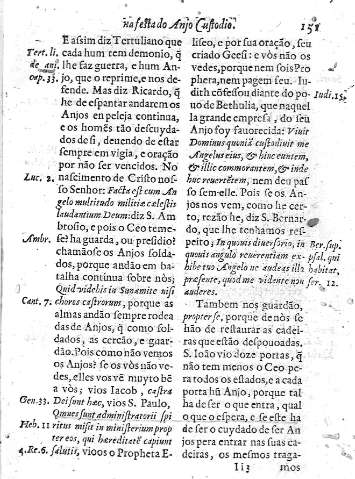 na festa do Anjo Custodio. 151
E assim diz Tertuliano que
cada hum tem demonio, q̃
lhe faz guerra, e hum An-
jo, que o reprime, e nos de-
fende. Mas diz Ricardo, q̃
he de espantar andarem os
Anjos em peleja continua,
e os homẽs tão descuyda-
dos de si, devendo de estar
sempre em vigia, e oração
por não ser vencidos. No
nascimento de Cristo nos-
so Senhor: Facta est cum An-
gelo multitudo militiæ cælestis
laudantium Deum: diz S. Am-
brosio, e pois o Ceo teme-
se? ha guarda, ou presidio?
chamãose os Anjos solda-
dos, porque andão em ba-
talha continua sobre nòs;
Quid videbis in Sunamite nisi
choros castrorum, porque as
almas andão sempre rodea
das de Anjos, q̃ como sol-
dados, as cercão, e guar-
dão. Pois como não vemos
os Anjos? se os vòs não ve-
des, elles vos vẽ muyto bẽ
a vòs; vio Iacob, castra
Dei sunt hæc, vio S. Paulo,
Omnes sunt administratorii spi
ritus missi in ministerium prop
ter eos, qui hæreditatẽ capiunt
salutis, vioos o Propheta E-
Tert. li.
de ani.
cap. 33.
Luc. 2.
Ambr.
Cant. 7.
Gen. 33.
Heb. 11
4. Re. 6.
liseo, e por sua oração, seu
criado Geesi: e vòs não os
vedes, porque nem sois Pro
phera, nem pagem seu. Iu-
dith cõfessou diante do po-
vo de Bethulia, que naquel
la grande empresa, do seu
Anjo foy favorecida: Vivit
Dominus quoniã custodivit me
Angelus eius, & hinc euntem,
& illic commorantem, & inde
huc revertẽtem, nem deu pas
so sem elle. Pois se os An-
jos nos vem, como he cer-
to, rezão he, diz S. Bernar-
do, que lhe tenhamos res-
peito; In quovis diversorio, in
quovis angulo reverentiam ex-
hibe tuo Angelo ne audeas illa
præsente, quod me vidente non
auderes.
Tambem nos guardão,
propter se, porque de nòs se
hão de restaurar as cadei-
ras que estão despouoadas.
S. Ioão vio doze portas, q̃
não tem menos o Ceo pe-
ra todos os estados, e a cada
porta hũ Anjo, porque tal
ha de ser o que entra, qual
o que o espera, e se este ha
de ser o cuydado de ser An
jos pera entrar nas suas ca-
deiras, os mesmos traga-
Iudi. 15.
Ber. sup.
psal. qui
habitat,
ser. 12.
Ii3 mos